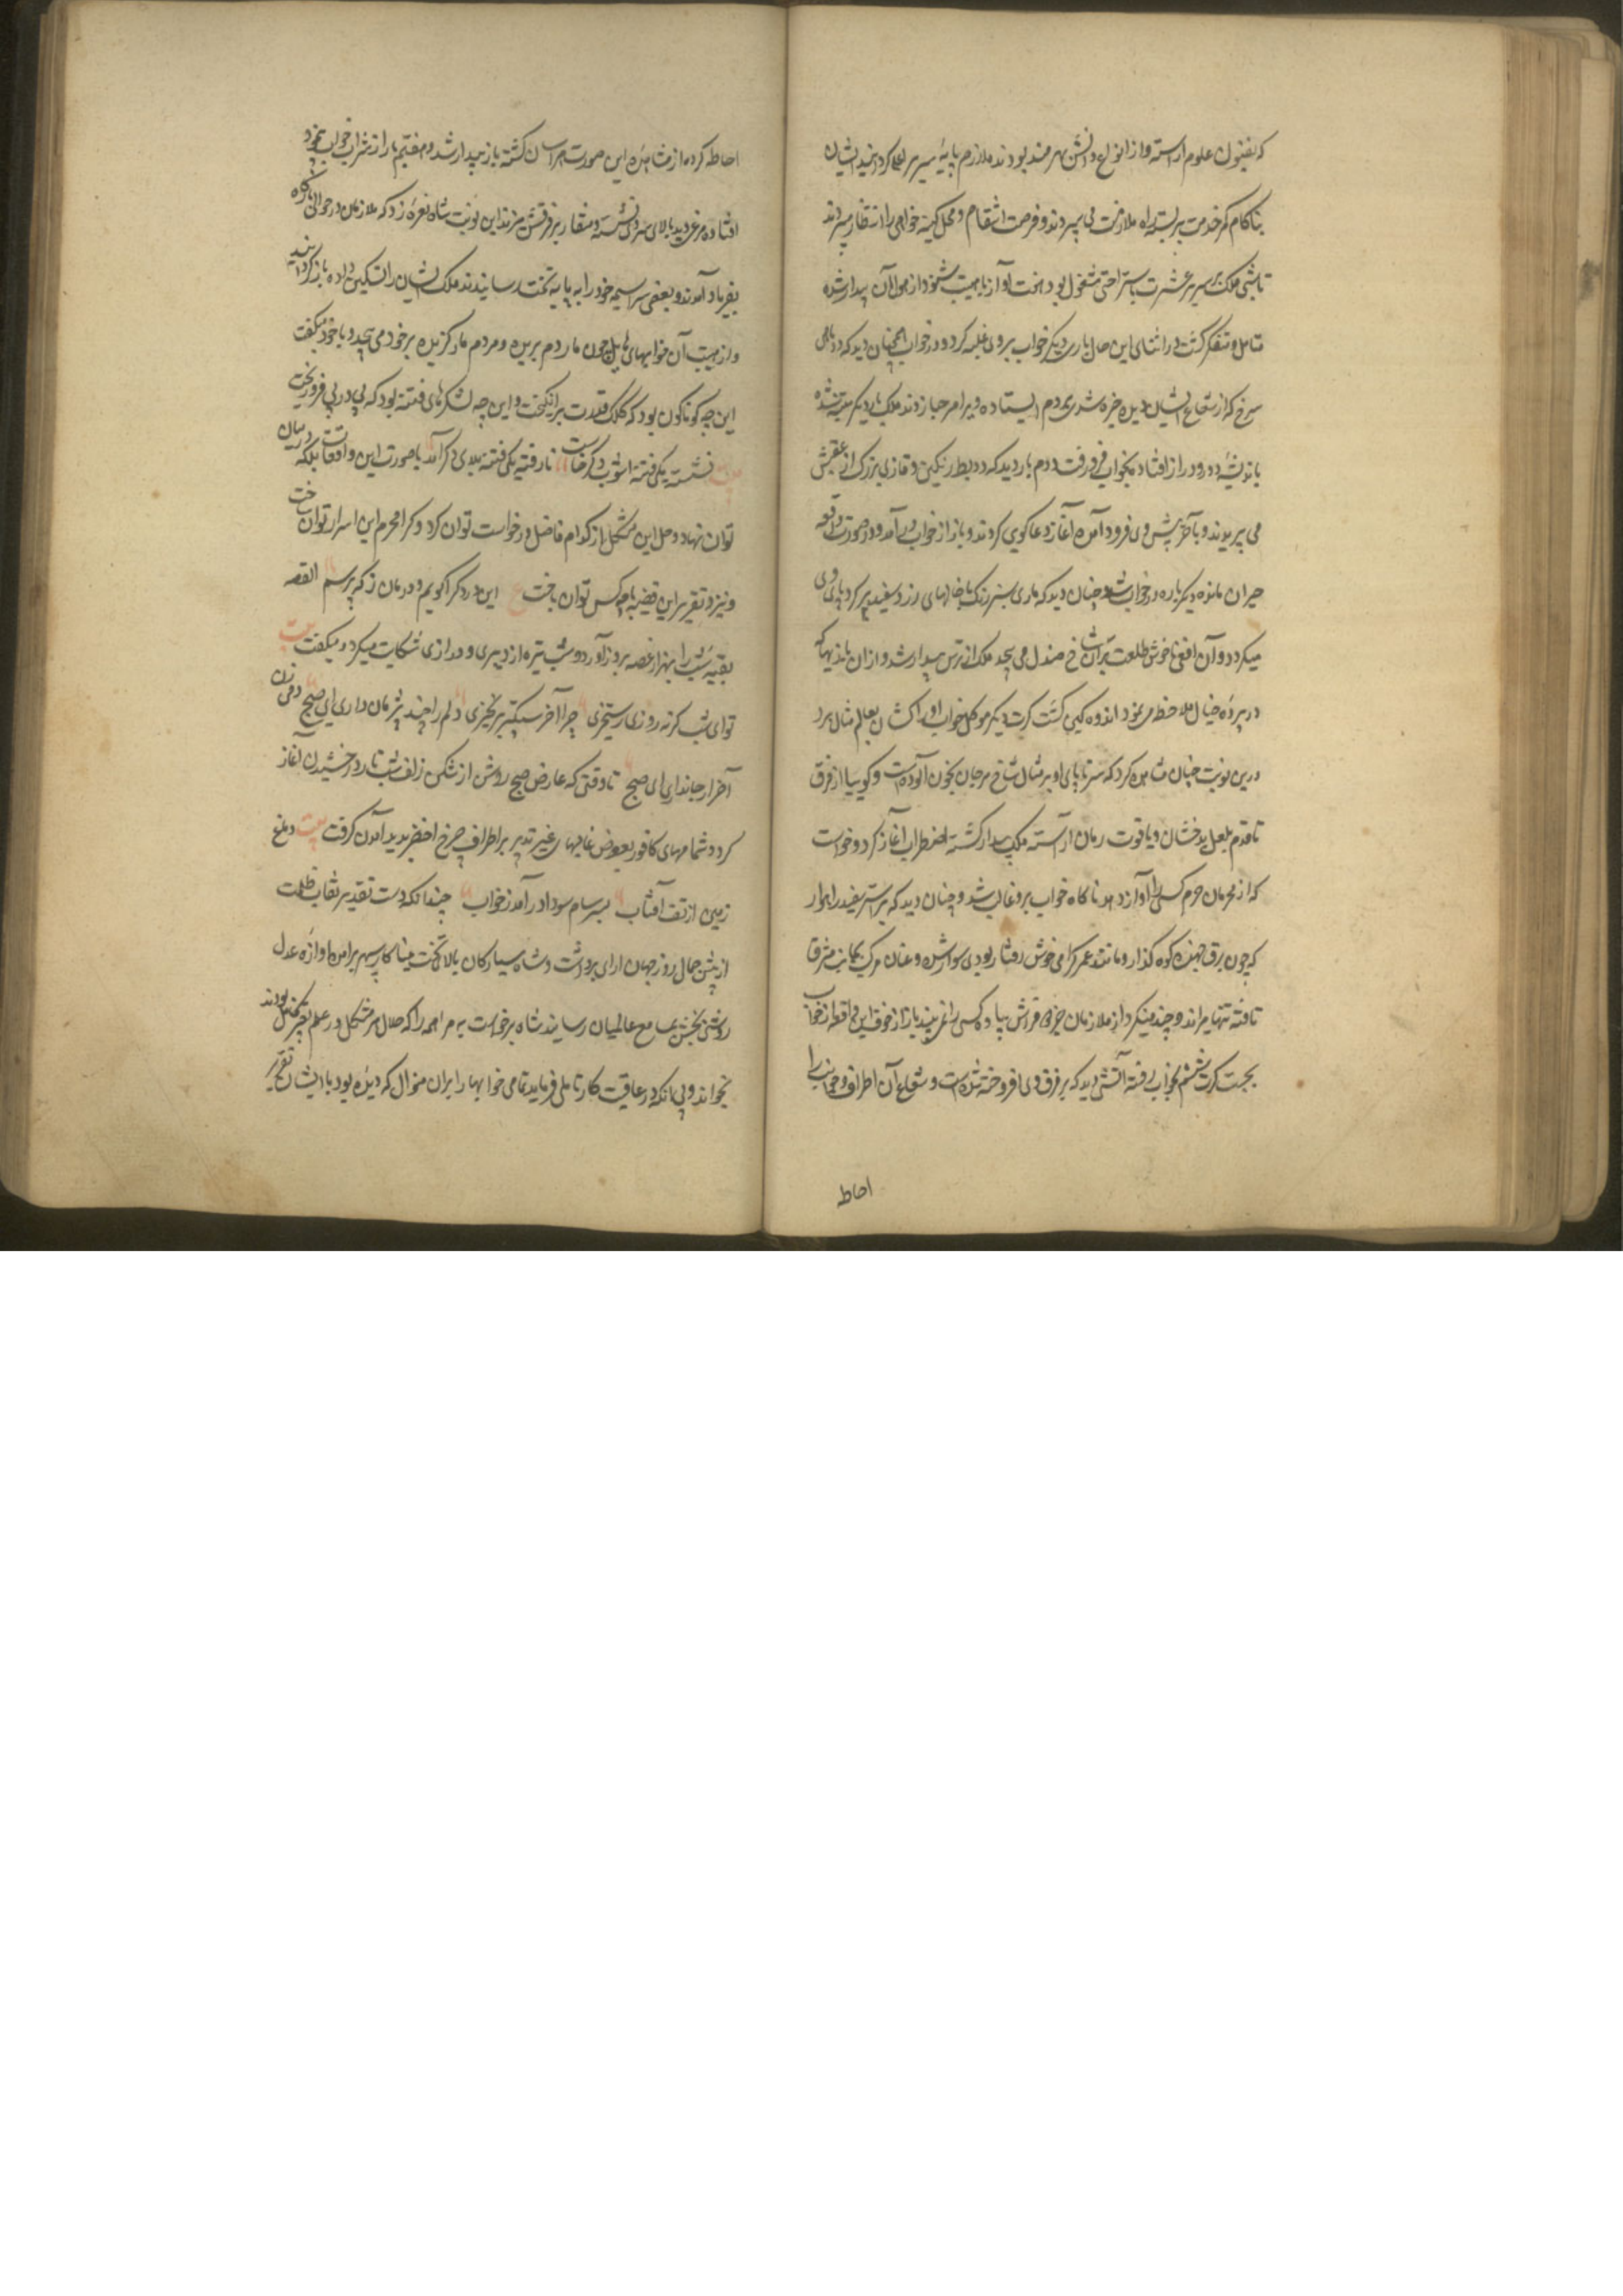 که بفنون علوم آراسته و از انواع دانش بهره‌مند بودند ملازم پایهٔ سریر اعلی کردانید ایشان
بناکام کمر خدمت بر بسته راه ملازمت می سپردند و فرصت انتقام و محل کینه خواهی را انتظار میبردند
تا شبی ملک بر سریر عشرت باستراحتی مشغول بود هفت آواز با هیبت شنود از هول آن بیدار شده
متامل و متفکر کشت در اثنای این حال باری دیکر خواب بر وی غلبه کرد و در خواب آنچنان دید که دو ماهی
سرخ که از شعاع ایشان دیده خیره شدی بر دم ایستاده ویرا مرحبا زدند ملک بار دیکر متنبه شده
باندیشهٔ دور و دراز افتاد بخواب فرو رفت دوم بار دید که دو بط رنکین و قازی بزرک از عقبش
می پریدند و بآخر پیش وی فرود آمده آغاز دعا کوی کردند و باز از خواب در آمد و در صورت واقعه
حیران مانده دیکر باره در خواب شد چنان دید که ماری سبز رنک با خالهای زرد و سفید بر کرد پای وی
میکردد و آن افعی ناخوش طلعت بر آن شاخ صندل می پیچد ملک از ترس بیدار شد و از آن بازیها که
در پردهٔ خیال ملاحظه می نمود اندوهکین کشت کرت دیکر موکل خواب او را کشان بعالم مثال برد
درین نوبت چنان مشاهده کرد که سر تا پای او بر مثال شاخ مرجان بخون آلوده است و کوییا از فرق
تا قدم بلعل بدخشان و یاقوت رمان آراسته ملک بیدار کشته اضطراب آغاز کرد و خواست
که از محرمان حرم کسی را آواز دهد ناکاه خواب برو غالب شد و چنان دید که بر استر سفید راهوار
که چون برق جهنده کوه کذار و مانند عمر کرامی خوش رفتار بودی سوار شده و عنان مرکب بجانب مشرق
تافته تنها میراند و چندمینکرد از ملازمان جز دو فراش پیاده کسی را نمی بیند باز از خوف این واقعه از خواب
بجست کرت ششم بخواب رفته آتشی دید که بر فرق وی افروخته شده است و شعاع آن اطراف و جوانب را
احاطه
احاطه کرده از مشاهده این صورت هراسان کشته باز بیدار شد و هفتم بار از شراب خواب بیخود
افتاده مرغی دید بالای سر وی نشسته و منقار بر فرقش میزند این نوبت شاه نعره زد که ملازمان در حوالی بارکاه
بفریاد آمدند و بعضی سراسیمه خود را به پایه تخت رسانیدند ملک ایشان را تسکین داده باز کردانید
و از هیبت آن خوابهای هایل چون مار دم بریده و مردم مار کزیده بر خود می پیچید و با خود میکفت
این چه کوناکون بود که کلک قدرت بر انکیخت و این چه لشکرهای فتنه بود که پی در پی فرو ریخت
بیت ننشسته یکی فتنه اشوب دکر خاست نارفته یکی فتنه بلای دکر آمد با صورت این واقعات بلکه درمیان
توان نهاد و حل این مشکل از کدام فاضل در خواست توان کرد و کرا محرم این اسرار توان ساخت
و نیز تقریر این قضیه با چه کس توان باخت ع این درد کرا کویم و درمان ز که پرسم القصه
بقیه شب را بهزار غصه بروز آورد و شب تیره از دیری و درازی شکایت میکرد و میکفت بیت
تو ای شب کر نه روزی رستخیزی چرا آخر سبکتر بر نخیزی دلم را چند پژمان داری ای صبح دمی زن
آخر ار جانداری ای صبح تا وقتی که عارض صبح روشن از شکن زلف شب تار درخشیدن آغاز
کرد و شمامهای کافور بعوض غالیهای عنبر تدبیر بر اطراف چرخ اخضر پدید آمدن کرفت بیت دماغ
زمین از تف آفتاب بسرسام سودا در آمد ز خواب چندانکه دست تقدیر نقاب ظلمت
از پیش جمال روز جهان ارای برداشت و شاه سیارکان بالای تخت مینا کار سپهر برامده اوازه عدل
روشنی بخش بمسامع عالمیان رسانید شاه برخواست براهمه را که حلال هر مشکل و در علم تعبیر کامل بودند
بخواند و بی آنکه در عاقبت کار تاملی فرماید تمامی خوابها را بران منوال که دیده بود با ایشان تقریر